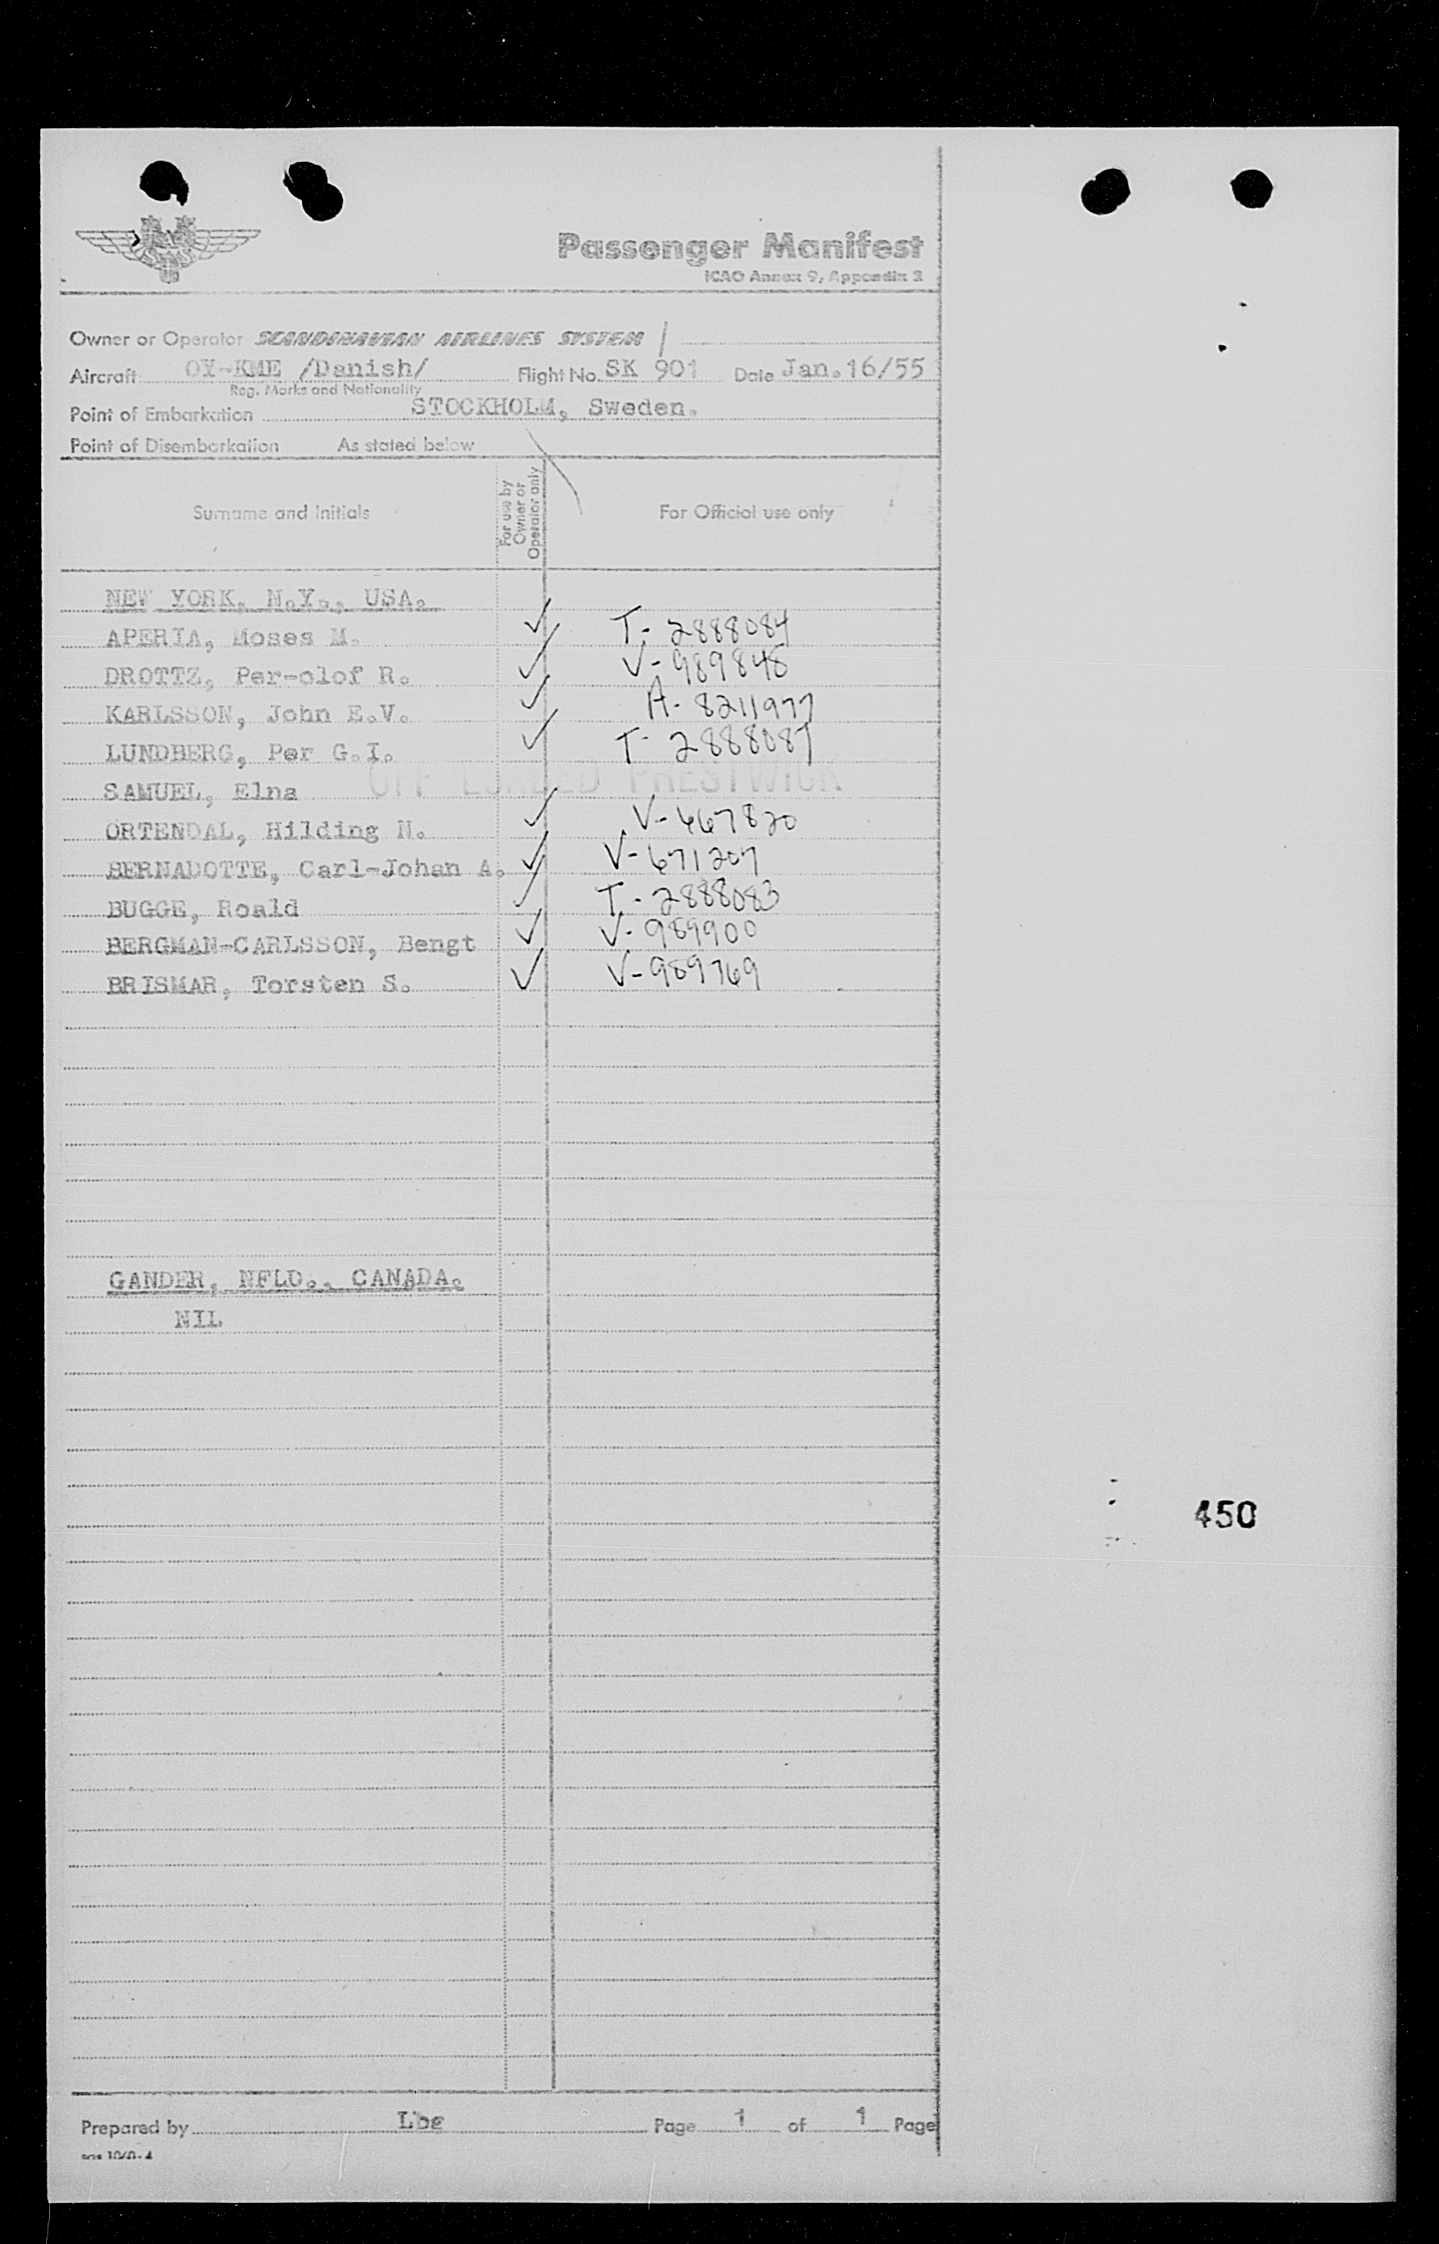 SAS
Passenger Manifest
ICAO Annex 9, Appendix 3
Owner or Operator SCANDINAVIAN AIRLINES SYSTEM
Aircraft OY-KME /Danish/ Flight No. SK 901 Date Jan.16/55
Reg. Marks and Nationality
Point of Embarkation STOCKHOLM, Sweden.
Point of Disembarkation As stated below
Surname and Initials
For use by
Owner or
Operator only
For Official use only
NEW YORK, N.Y., USA.
APERIA, Moses M. ✓ T- 2888084
DROTTZ, Per-olof R. ✓ V- 989848
KARLSSON, John E.V. ✓ A- 8211977
LUNDBERG, Per G.I. ✓ T- 2888087
SAMUEL, Elna OFF LOADED PRESTWICK
ORTENDAL, Hilding N. ✓ V- 667820
BERNADOTTE, Carl-Johan A. ✓ V- 671207
BUGGE, Roald ✓ T- 2888083
BERGMAN-CARLSSON, Bengt ✓ V- 989900
BRISMAR, Torsten S. ✓ V- 989769
GANDER, NFLD., CANADA.
NIL
450
Prepared by Lbg Page 1 of 1 Page